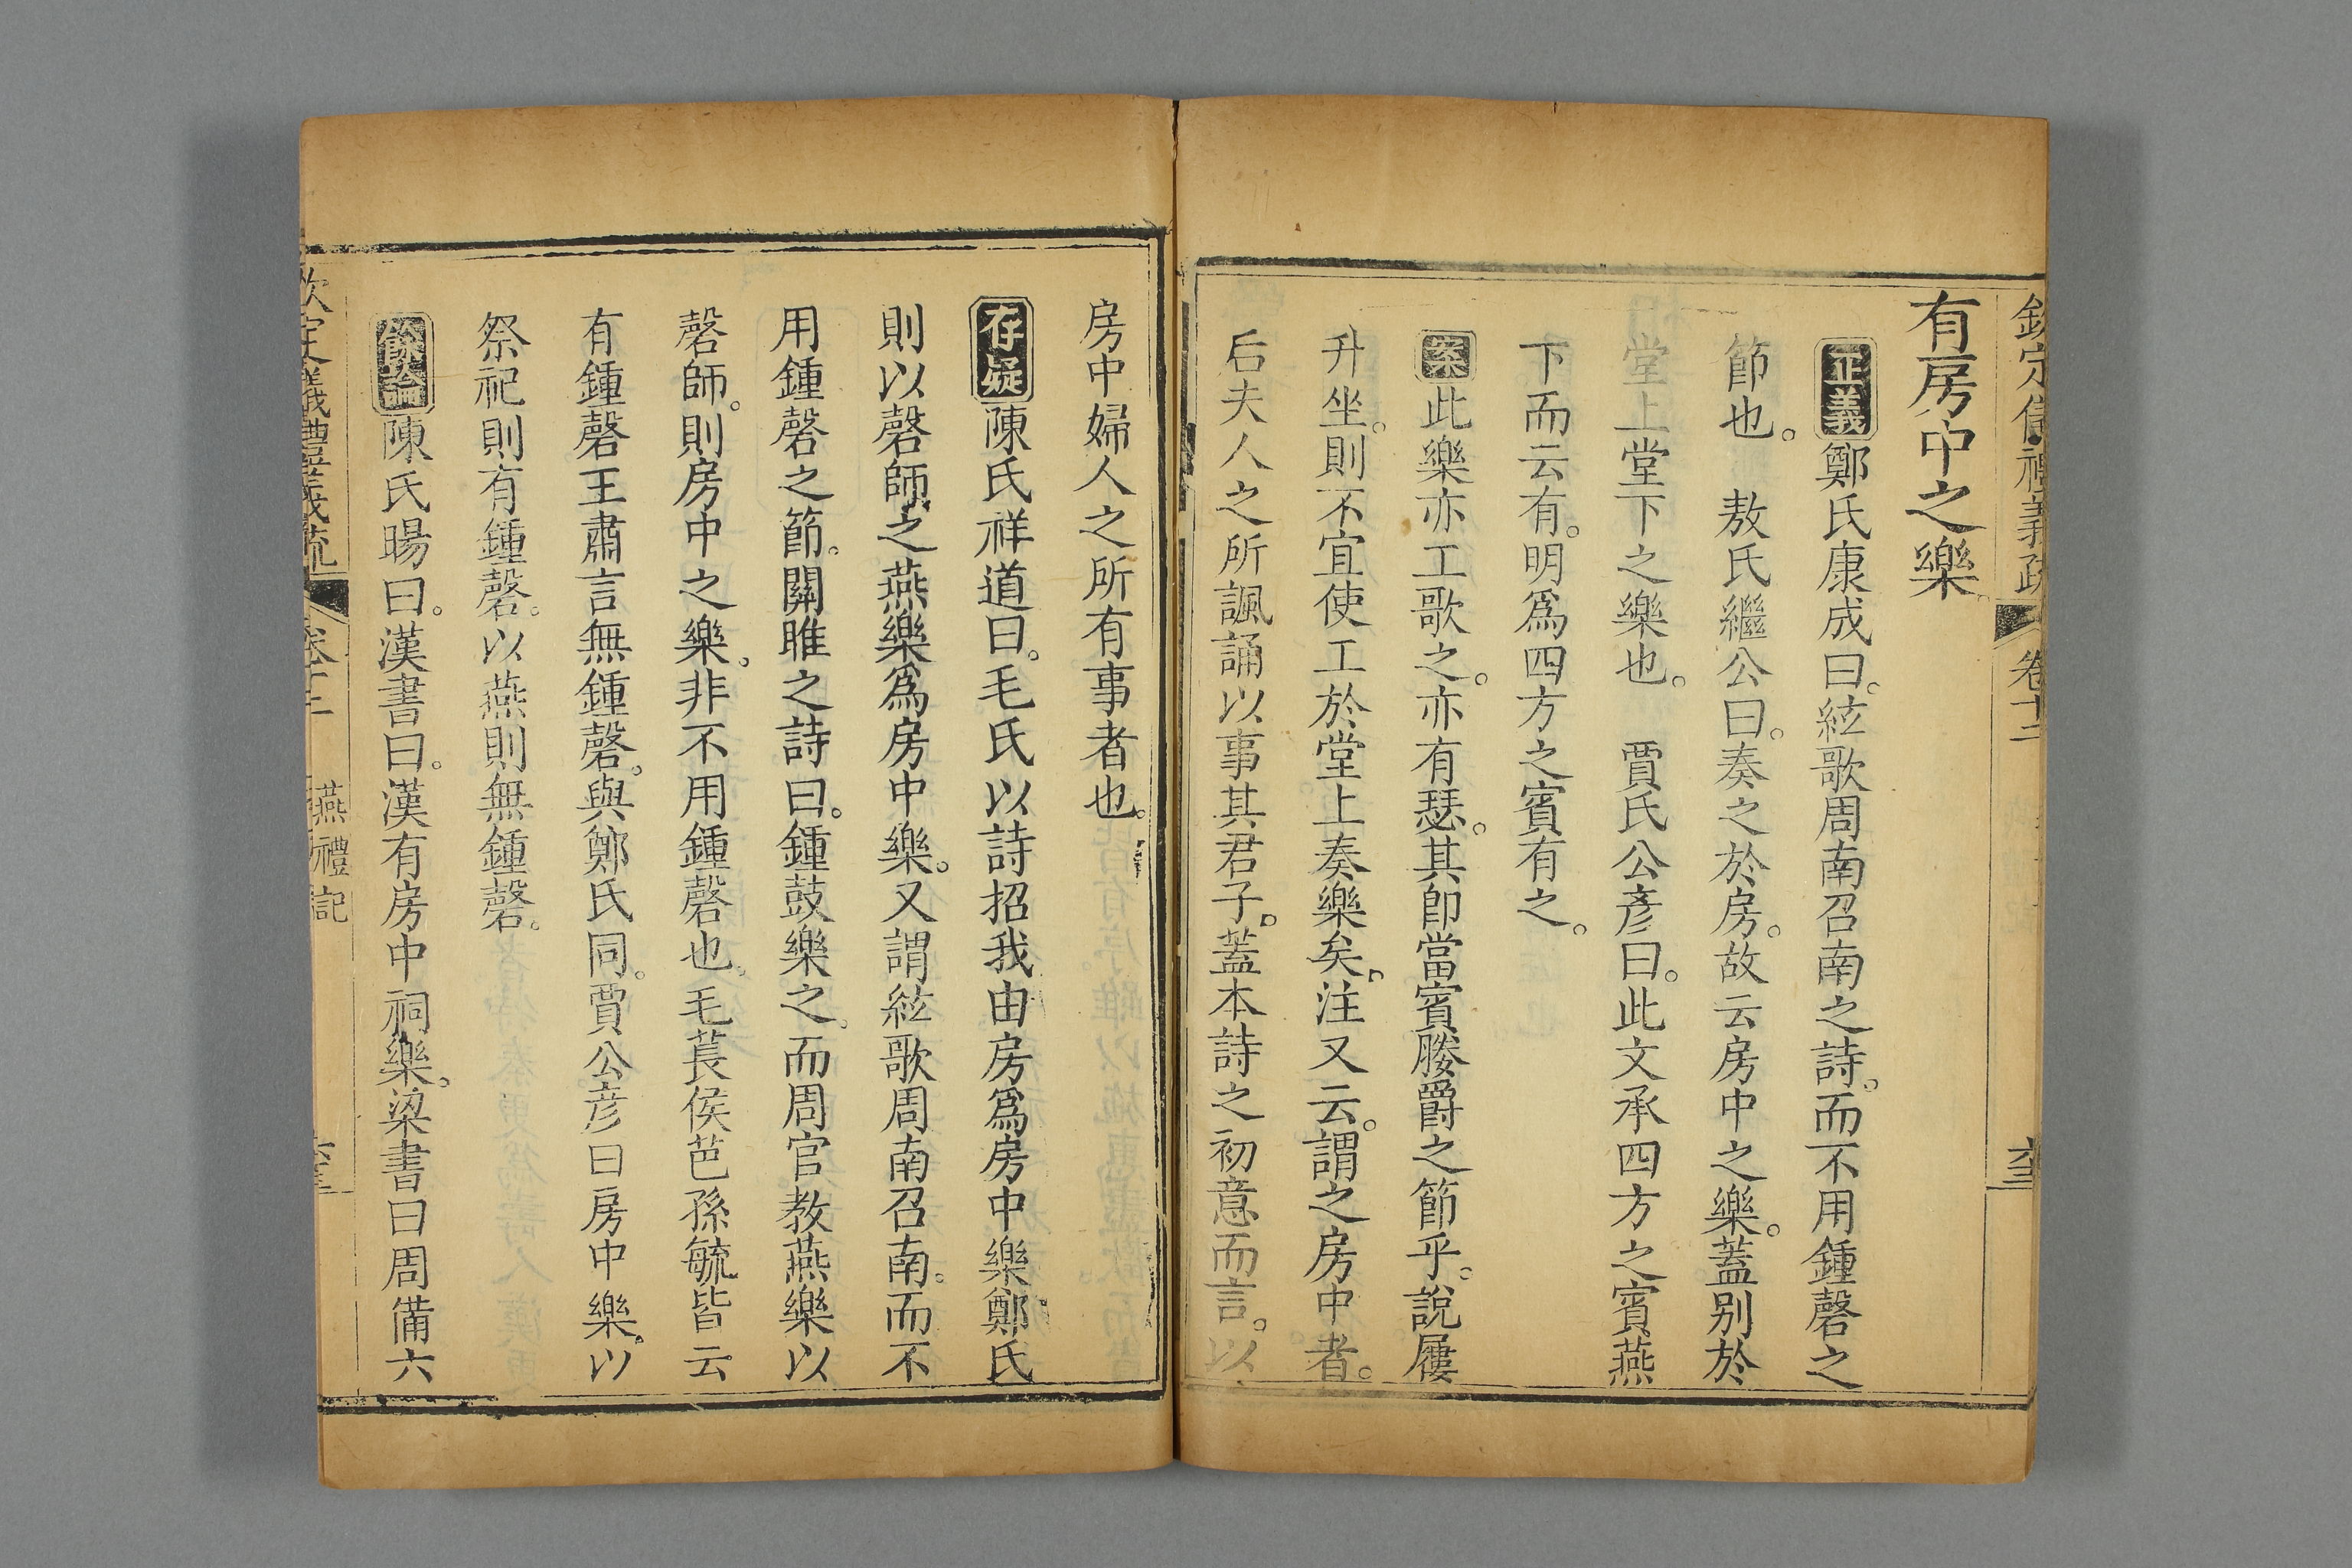 欽定儀禮義疏 卷十二
有房中之樂
正義鄭氏康成曰。絃歌周南召南之詩。而不用鍾磬之
節也。 敖氏繼公曰。奏之於房。故云房中之樂。蓋别於
堂上堂下之樂也。 賈氏公彥曰。此文承四方之賓燕
下而云有。明爲四方之賓有之。
案此樂亦工歌之。亦有瑟。其卽當賓媵爵之節乎。說屨
升坐。則不宜使工於堂上奏樂矣。注又云。謂之房中者。
后夫人之所諷誦以事其君子。蓋本詩之初意而言。以
房中婦人之所有事者也。
存疑陳氏祥道曰。毛氏以詩招我由房爲房中樂。鄭氏
則以磬師之燕樂爲房中樂。又謂絃歌周南召南。而不
用鍾磬之節。關雎之詩曰。鍾鼓樂之。而周官教燕樂以
磬師。則房中之樂。非不用鍾磬也。毛萇侯芭孫毓皆云
有鍾磬王肅言無鍾磬。與鄭氏同。賈公彥曰房中樂。以
祭祀則有鍾磬。以燕則無鍾磬。
餘論陳氏暘曰。漢書曰。漢有房中祠樂。梁書曰周備六
欽定儀禮義疏 卷十二 燕禮記